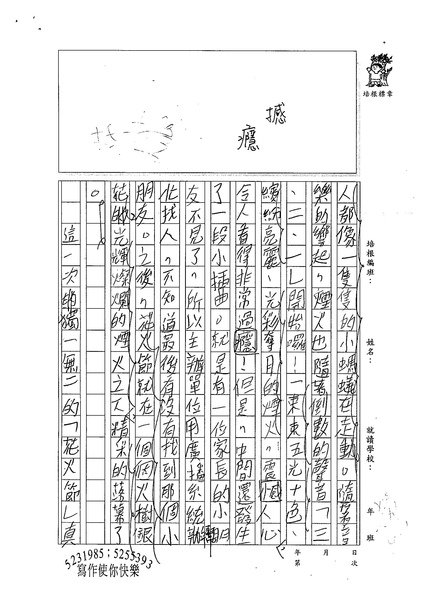 培根標章
撼
癮
培根編班：
姓名：
就讀學校：
年 班
年 月 日
第 次
人都像一隻隻的小螞蟻在走動。隨著音
樂的響起，煙火也隨著倒數的聲音「三
、二、一」開始囉！一束束五光十色、
繽紛亮麗、光彩奪目的煙火，震撼人心
令人看得非常過癮！但是，中間還發生
了一段小插曲。就是有一位家長的小朋
友不見了，所以主辦單位用廣播系統
北找人，不知道最後有沒有找到那個小
朋友。之後，花火節就在一個個火樹銀
花的光輝燦爛的煙火之下精采的落幕了
。
這一次獨一無二的「花火節」真
5231985；5255393
寫作使你快樂